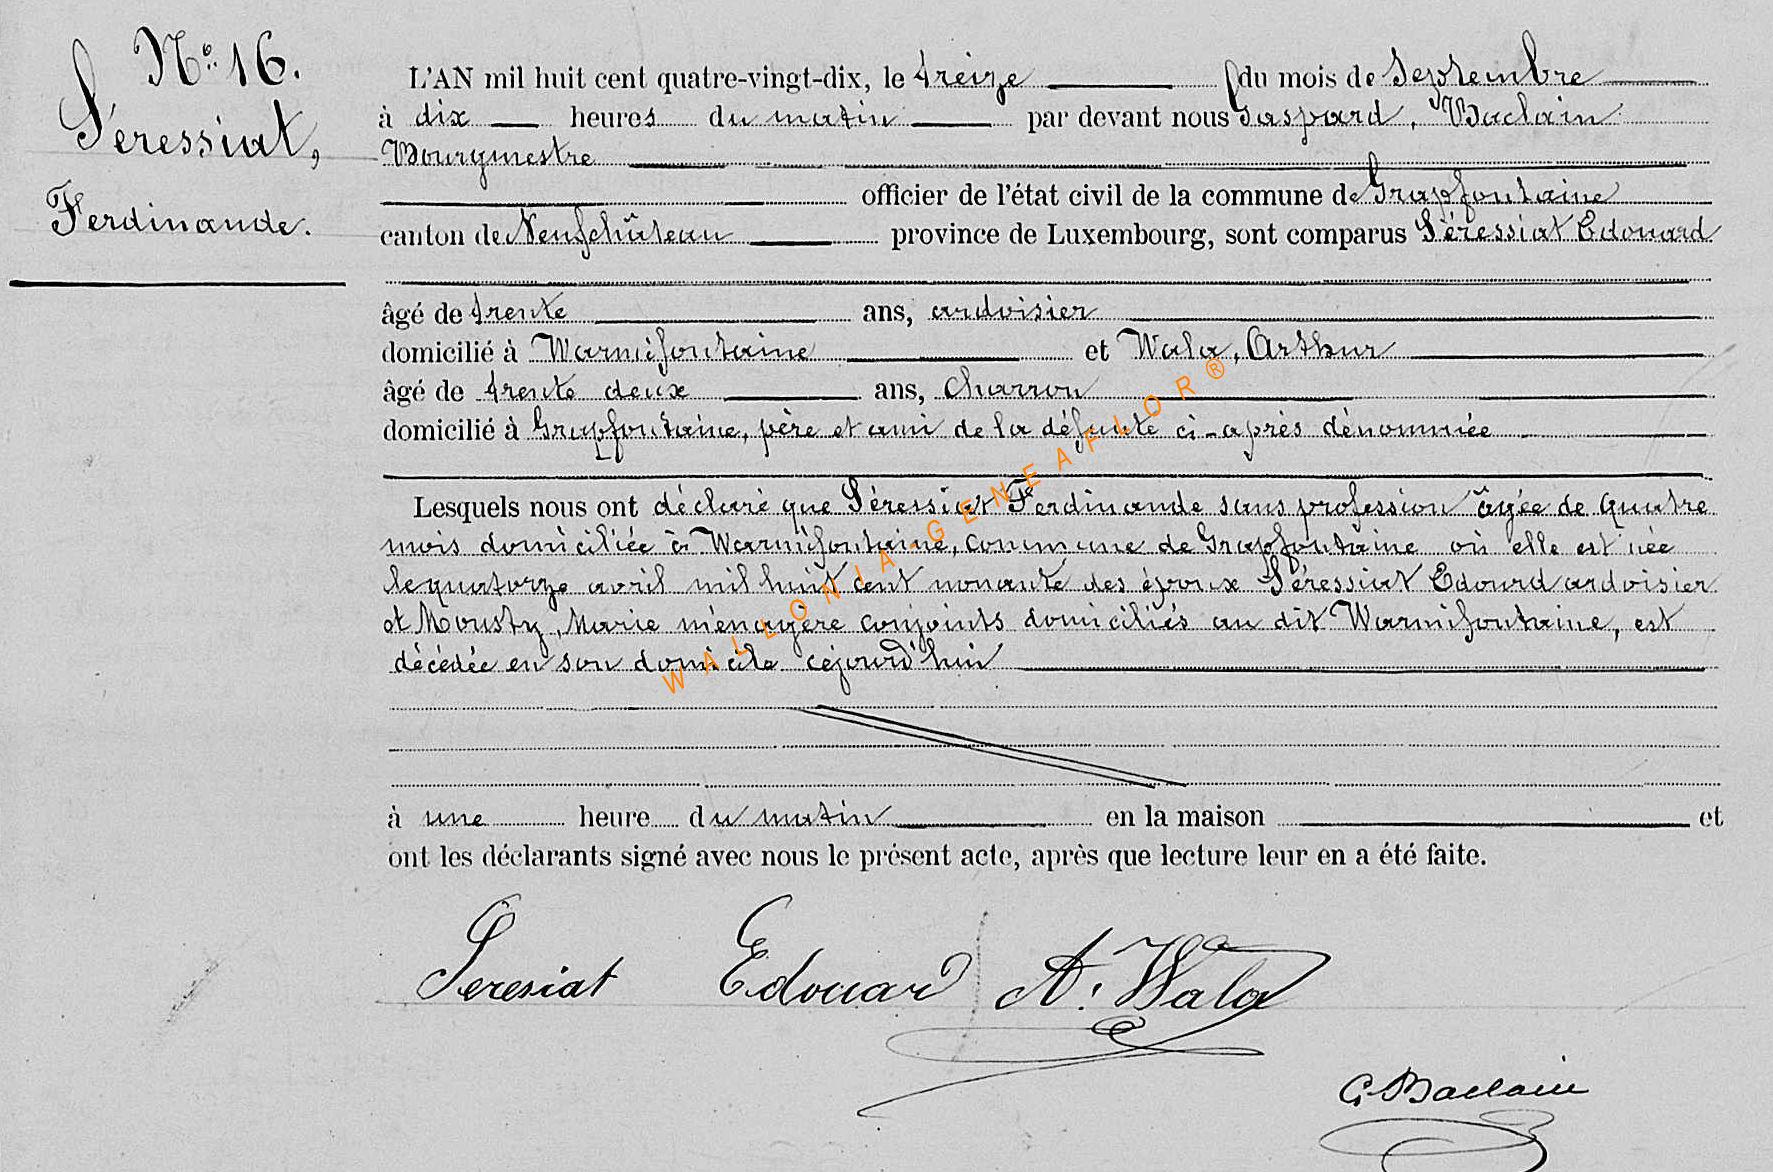 N° 16.
Séressiat,
Ferdinande.
L'AN mil huit cent quatre-vingt-dix, le treize du mois de Septembre
à dix heures du matin par devant nous Gaspard, Baclain
Bourgmestre
officier de l'état civil de la commune de Grapfontaine
canton de Neufchâteau province de Luxembourg, sont comparus Séressiat Edouard
âgé de trente ans, ardoisier
domicilié à Warmifontaine et Wala, Arthur
âgé de trente deux ans, charron
domicilié à Grapfontaine, père et ami de la défunte ci-après dénommée
Lesquels nous ont déclaré que Séressiat Ferdinande sans profession âgée de quatre
mois domiciliée à Warmifontaine, commune de Grapfontaine où elle est née
le quatorze avril mil huit cent nonante des époux Séressiat Edourd ardoisier
et Mousty, Marie ménagère conjoints domiciliés au dit Warmifontaine, est
décédée en son domicile cejourd'hui
à une heure du matin en la maison et
ont les déclarants signé avec nous le présent acte, après que lecture leur en a été faite.
Seresiat Edouard A. Wala
G. Baclain
WALLONIA-GENEAFLOR®